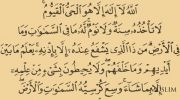 اللَّهُ لَا إِلَٰهَ إِلَّا هُوَ الْحَيُّ الْقَيُّومُ
لَا تَأْخُذُهُ سِنَةٌ وَلَا نَوْمٌ لَّهُ مَا فِي السَّمَٰوَٰتِ وَمَا
فِي الْأَرْضِ مَن ذَا الَّذِي يَشْفَعُ عِندَهُ إِلَّا بِإِذْنِهِ يَعْلَمُ مَا بَيْنَ
أَيْدِيهِمْ وَمَا خَلْفَهُمْ وَلَا يُحِيطُونَ بِشَيْءٍ مِّنْ عِلْمِهِ
إِلَّا بِمَا شَاءَ وَسِعَ كُرْسِيُّهُ السَّمَٰوَٰتِ وَالْأَرْضَ